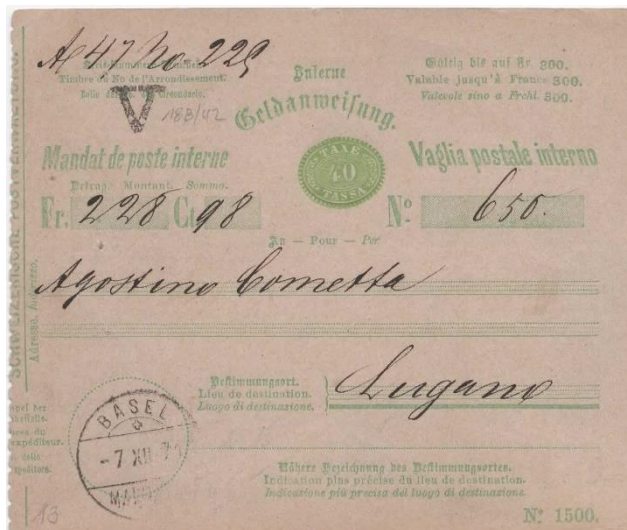 A 47 No 229
Timbre du No de l'Arrondissement.
V
183/42
Interne
Geldanweisung.
Gültig bis auf Fr. 300.
Valable jusqu'à Francs 300.
Valevole sino a Frchi. 300.
Mandat de poste interne
TAXE
40
TASSA
Vaglia postale interno
Betrag. Montant. Somma.
Fr. 228 Ct. 98
No. 650.
An — Pour — Per
Agostino Cometta
SCHWEIZERISCHE POSTVERWALTUNG.
Adresse.
Bestimmungsort.
Lieu de destination.
Luogo di destinazione.
Lugano
BASEL
-7 XII 7
Nähere Bezeichnung des Bestimmungsortes.
Indication plus précise du lieu de destination.
Indicazione più precisa del luogo di destinazione.
13
No. 1500.